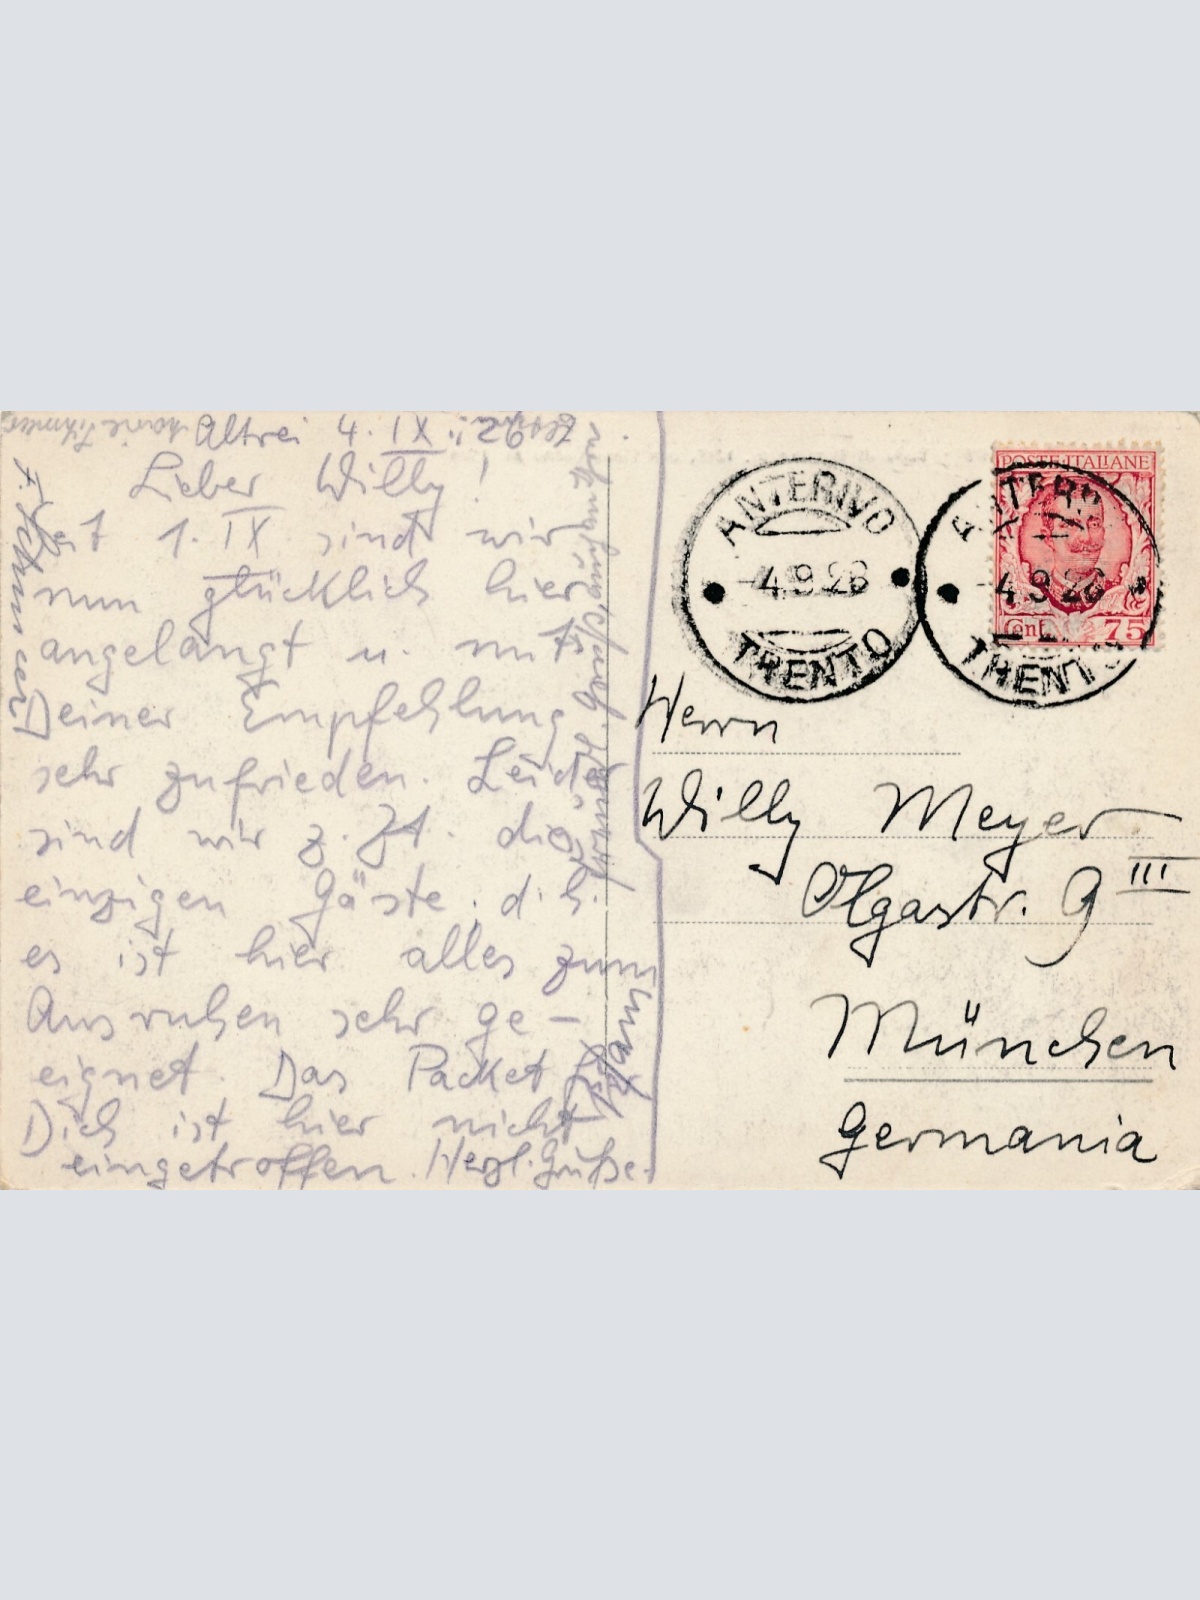 Altrei 4. IX.
Lieber Willy!
1. IX sind wir
nun glücklich hier
angelangt u. mit
Deiner Empfehlung
sehr zufrieden. Leider
sind wir z. Zt. die
einzigen Gäste. d. h.
es ist hier alles zum
Ausruhen sehr ge-
eignet. Das Packet für
Dich ist hier nicht
eingetroffen. Herzl. Grüße.
ANTERIVO
-4.9.26
TRENTO
POSTE·ITALIANE
-4.9.26
TRENTO
Cent 75
Herrn
Willy Meyer
Olgastr. 9 III
München
Germania